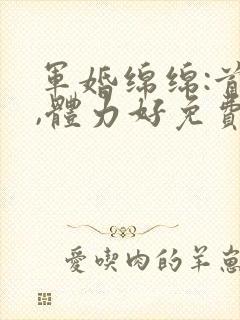 軍婚綿綿:首
,體力好免費
愛喫肉的羊崽